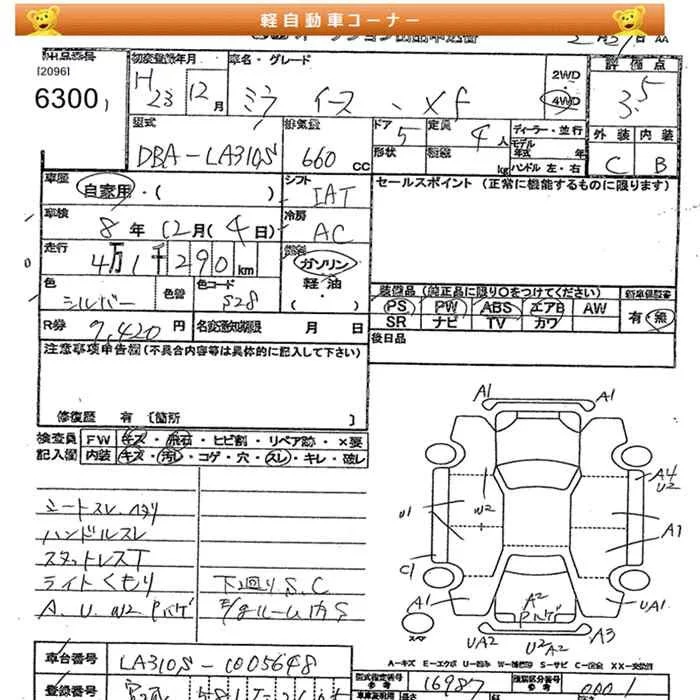 軽自動車コーナー
出品番号
[2096]
6300
初度登録年月
H23 12月
車名・グレード
ミラ イース ・ Xf
2WD
・
4WD
評価点
3.5
外装 内装
C B
型式
DBA-LA310S
排気量
660 CC
ドア 5
形状
定員 4人
積載 kg
ディーラー・並行
モデル年式 年
ハンドル 左・右
車歴
自家用・( )
シフト
IAT
セールスポイント (正常に機能するものに限ります)
車検
8年 12月 (4日)
冷房
AC
走行
4万1千290km
燃料
ガソリン
軽・油
・( )
色
シルバー
色替
色コード
S28
装備品 (純正品に限り○をつけてください)
PS PW ABS エアB AW
SR ナビ TV カワ
新車保証書
有・無
R券 9,420円
名変通知期限 月 日
後日品
注意事項申告欄(不具合内容等は具体的に記入して下さい)
修復歴 有 [箇所 ]
検査員 FW キズ・飛石・ヒビ割・リペア跡・×要
記入欄 内装 キズ・汚レ・コゲ・穴・スレ・キレ・破レ
シートスレ.ヘタリ
ハンドルスレ
スタットレスT
ライトくもり 下回りS.C
A.U.W2 Pハゲ E/gルーム内S
A1 A1
A4
U2
U1 W2 A1
C1
A1 A2 Pハゲ UA1
スペア
UA2 U2 A2 A3
A-キズ E-エクボ U-凹み W-補修跡 S-サビ C-腐食 XX-交換済
車台番号 LA310S-1005648
型式指定番号 参考 16987
類別区分番号 参考 0001
登録番号